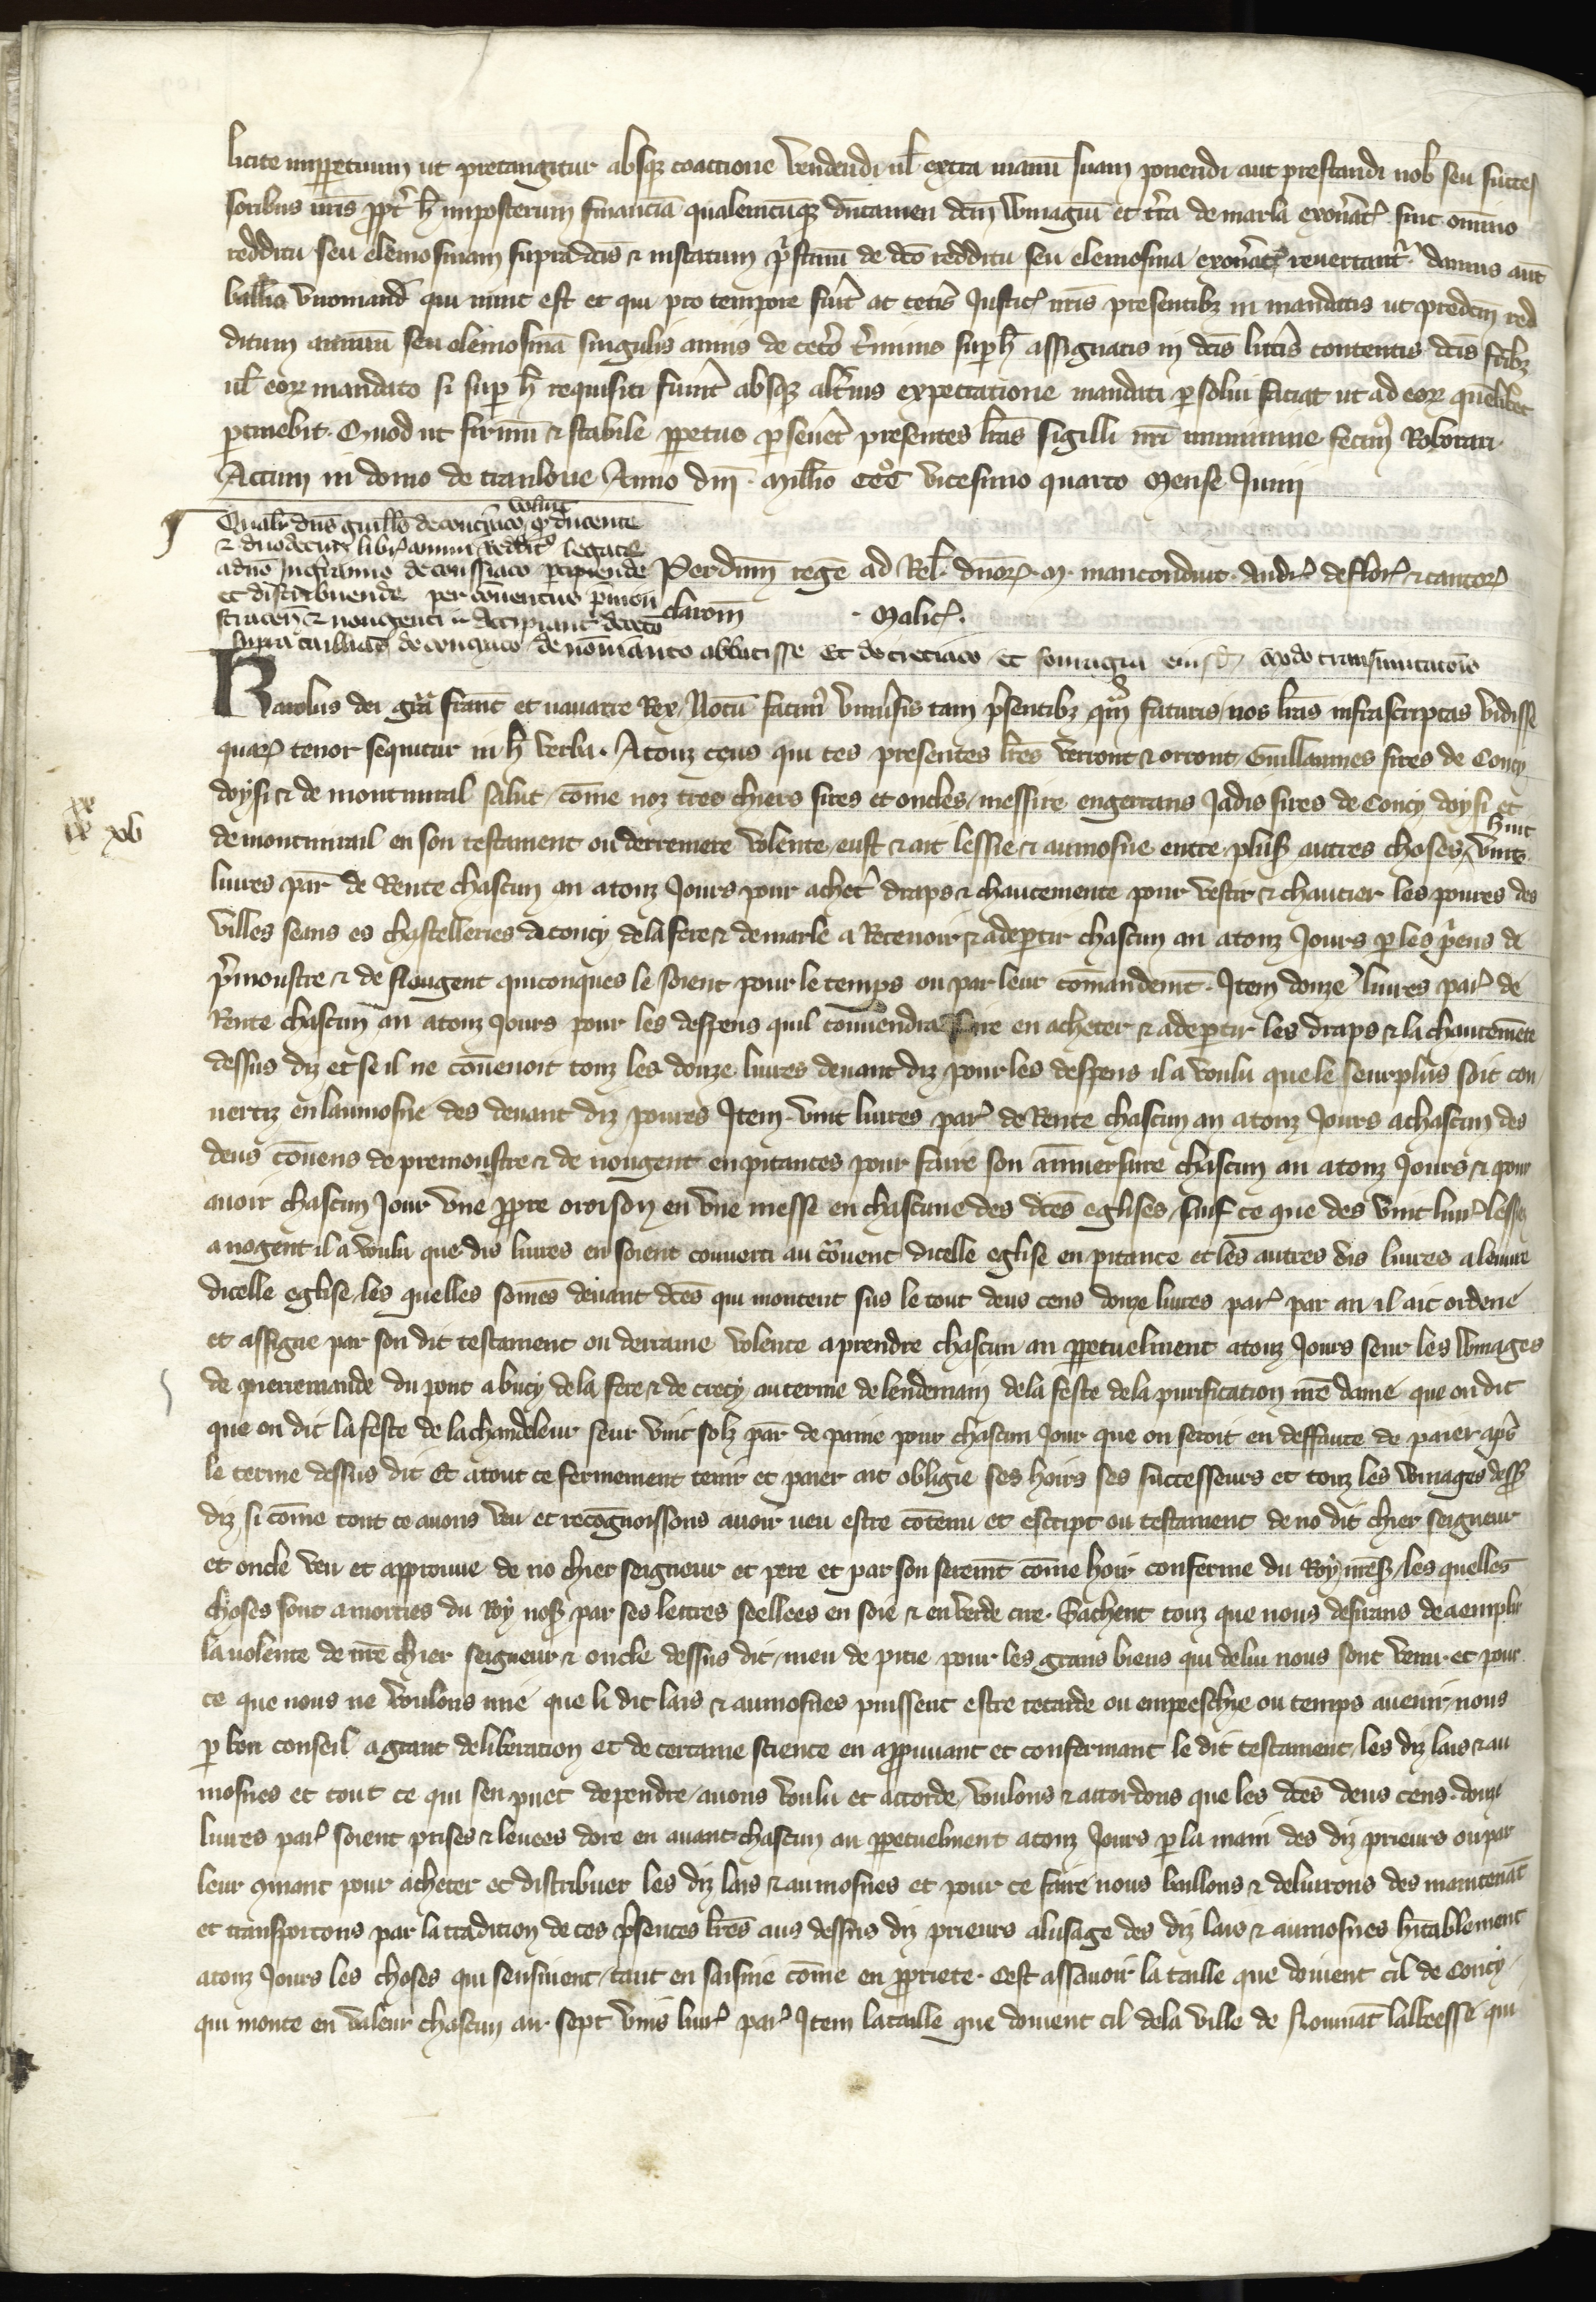 licite imppetuum ut pretangitur absque coactione vendendi ul extra manu suam ponendi aut prestandi nob seu succes
soribus nris ppt h imposterum financia qualemcumque dutamen dcm Winagiu et tra de marla exonat sint omnino
redditu seu elemosinam supradcis & instatum pstinu de dco redditu seu elemosina exonat revertant. damus aut
ballivo viromand qui nunc est et qui pro tempore fuit ac ceteris Justic nris presentibz in mandatis ut predcm red
ditum annuu seu elemosina singulis annis de cetero terminis sup h assignatis in dcis litteris contentis dcis fribz
ul eor mandato si sup h requisiti fuint absque alterius expectatione mandati persolui faciat ut ad eor quelibet
ptinebit. Quod ut firmu & stabile ppetuo perseueret presentes lras sigilli nri munimine fecim Roborari.
Actum in domo de tranlone Anno dni Millio CCC vicesimo quarto Mense Junii
Qualr dns guills de conciaco voluit q ducente
& duodeci libr annui reddit legate
a dno Ingeranno de consiaco percipiende
et distribuende per conventus premon
straten & nongenti & accipiant de ceto
supra tailliam de conciaco de nomanto abbatisse Et de creciaco et fouragia eiusd modo transmutatois
Per dnm regē ad Rel dnor. M. manconduit. Andr de flor & cantor
clarom . Malic.
Karolus dei gra franc et navarre Rex Notu facim universis tam psentibz qm futuris nos lras infrascriptas vidisse
quar tenor sequitur in h verba. A touz ceus qui ces presentes lres verront & orront Guillaumes sires de Coucy
doysi & de montmiral salut come noz tres chiers sires et oncles messire engerrans Jadis sires de Coucy doysi et
de montmirail en son testament ou derreniere volente eust & ait lessie & aumosne entre plus autres choses huit vins
livres par de Rente chascun an a touz Jours pour acheter draps & chaucemente pour vestir & chaucier les povres des
villes seans es chastelleries de coucy de la fere & de marle a Recevoir & a departir chascun an a touz Jours p les prieus de
pmoustre & de Nougent quiconques le soient pour le temps ou par leur comandemt. Item douze livres par de
Rente chascun an a touz Jours pour les despens quil convendra faire en acheter & a departir les draps & la chaucemete
dessus diz et se il ne convenoit touz les douze livres devant diz pour les despens il a voulu que le seurplus soit con
vertiz en laumosne des devant diz povres Item vint livres par de Rente chascun an a touz Jours a chascun des
deus covens de premoustre & de nougent en pitances pour faire son anniversaire chascun an a touz Jours & pour
avoir chascun Jour une propre oroison en une messe en chascune des dces eglises sauf ce que des vint livr lesses
a nogent il a voulu que dis livres en soient converti au covent dicelle eglise en pitance et les autres dis livres a leuvre
dicelle eglise les quelles somes devant dces qui montent sus le tout deus cens douze livres par par an il ait ordene
et assigne par son dit testament ou derraine volente a prendre chascun an ppetuelment a touz Jours seur les Winages
de pierremande du pont a bucy de la fere & de crecy au terme de lendemain de la feste de la purification nre dame que on dit
que on dit la feste de la chandeleur seur vint solz par de paine pour chascun Jour que on seroit en deffaute de paier aps
le terme dessus dit Et a tout ce fermement tenir et paier ait obligie ses hoirs ses successeurs et touz les Winages dess
diz si come tout ce avons veu et recognoissons avoir veu estre contenu et escript ou testament de no dit chier seigneur
et oncle veu et approuve de no chier seigneur et pere et par son seremt come hoir conferme du Roy nres les quelles
choses sont amorties du Roy noss par ses lettres seellees en soie & en verde cire. Sachent touz que nous desirans de aemplir
la volente de nre chier seigneur & oncle dessus dit meu de pitie pour les grans biens qui de lui nous sont venu et pour
ce que nous ne voulons mie que li dit lais & aumosnes puissent estre retarde ou empeeschie ou temps avenir nous
p bon conseil a grant deliberation et de certaine science en appruvant et confermant le dit testament les diz lais & au
mosnes et tout ce qui sen puet dependre avons voulu et accorde voulons & accordons que les dces deus cens douze
livres par soient prises & levees dore en avant chascun an ppetuelment a touz Jours p la main des diz prieurs ou par
leur mant pour acheter et distribuer les diz lais & aumosnes et pour ce faire nous baillons & delivrons des maintenat
et transportons par la tradition de ces psentes lres aus dessus diz prieurs a lusage des diz lais & aumosnes hitablement
a touz Jours les choses qui sensivent tant en saisine come en ppriete. Cest assavoir la taille que doivent cil de Coucy
qui monte en valeur chascun an sept vins livr par Item la taille que doivent cil de la ville de Noumat labbeesse qui